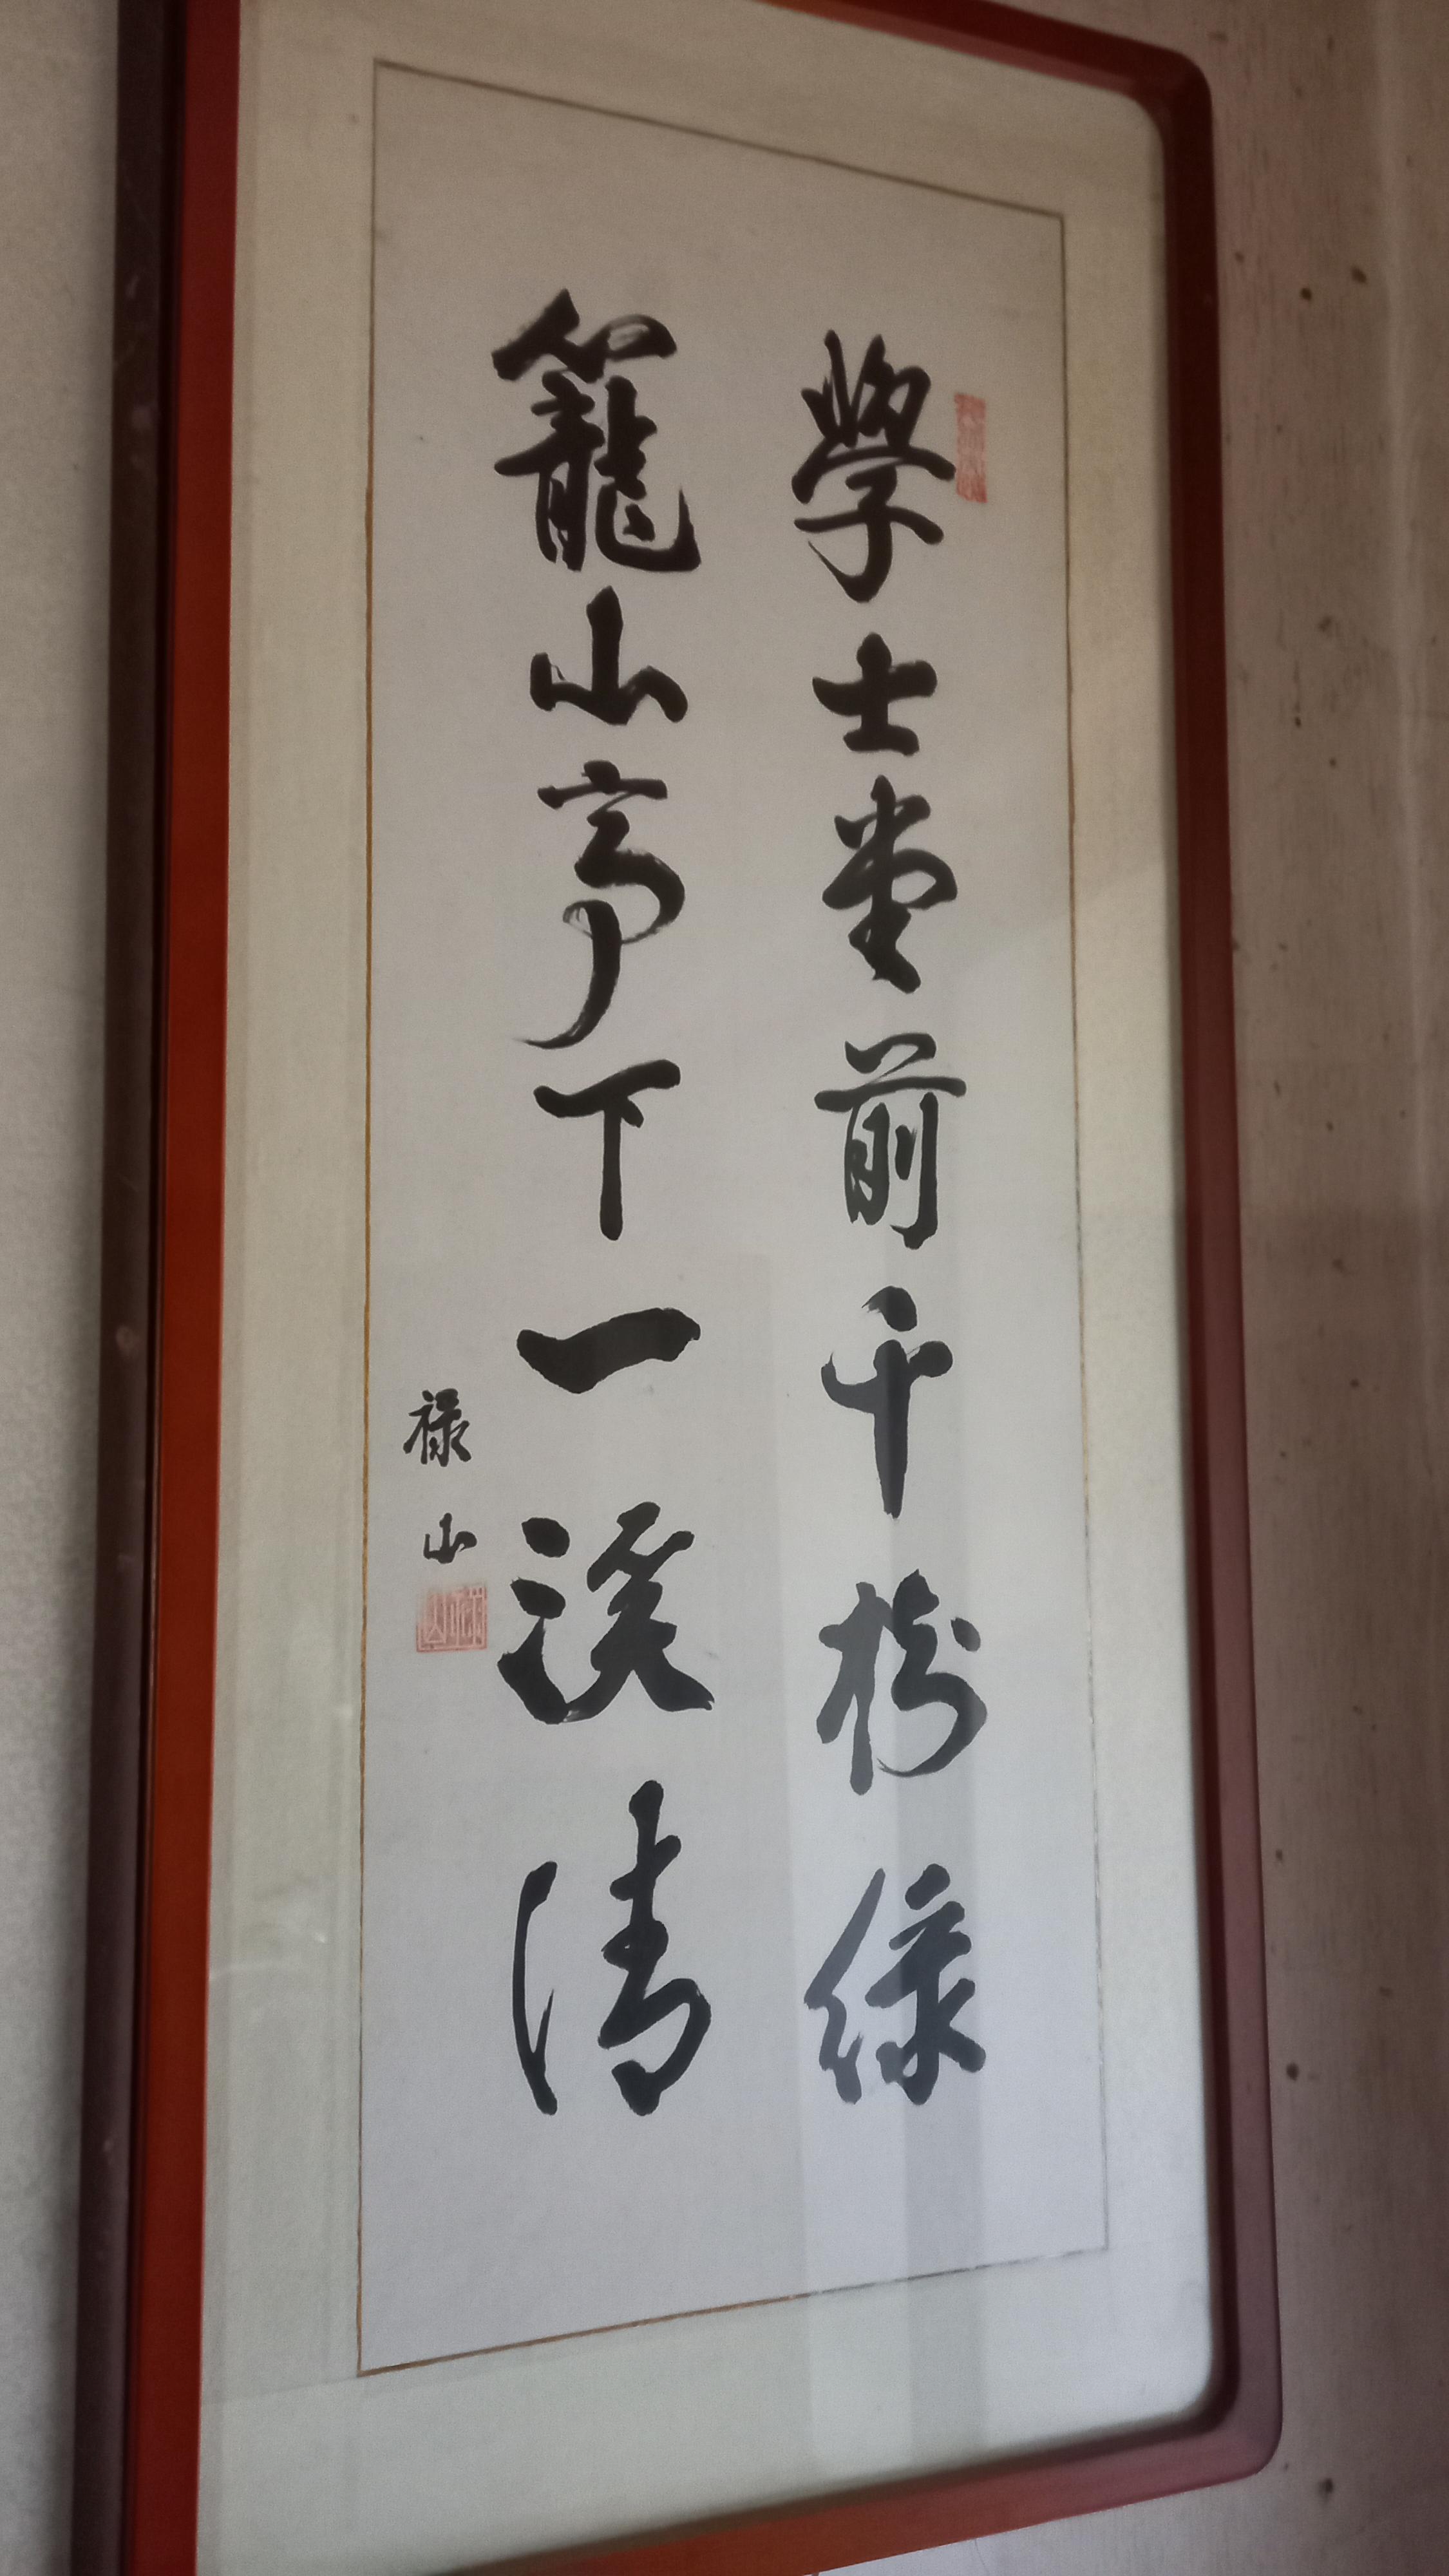 學士堂前千樹緑
籠山亭下一溪清
禄山